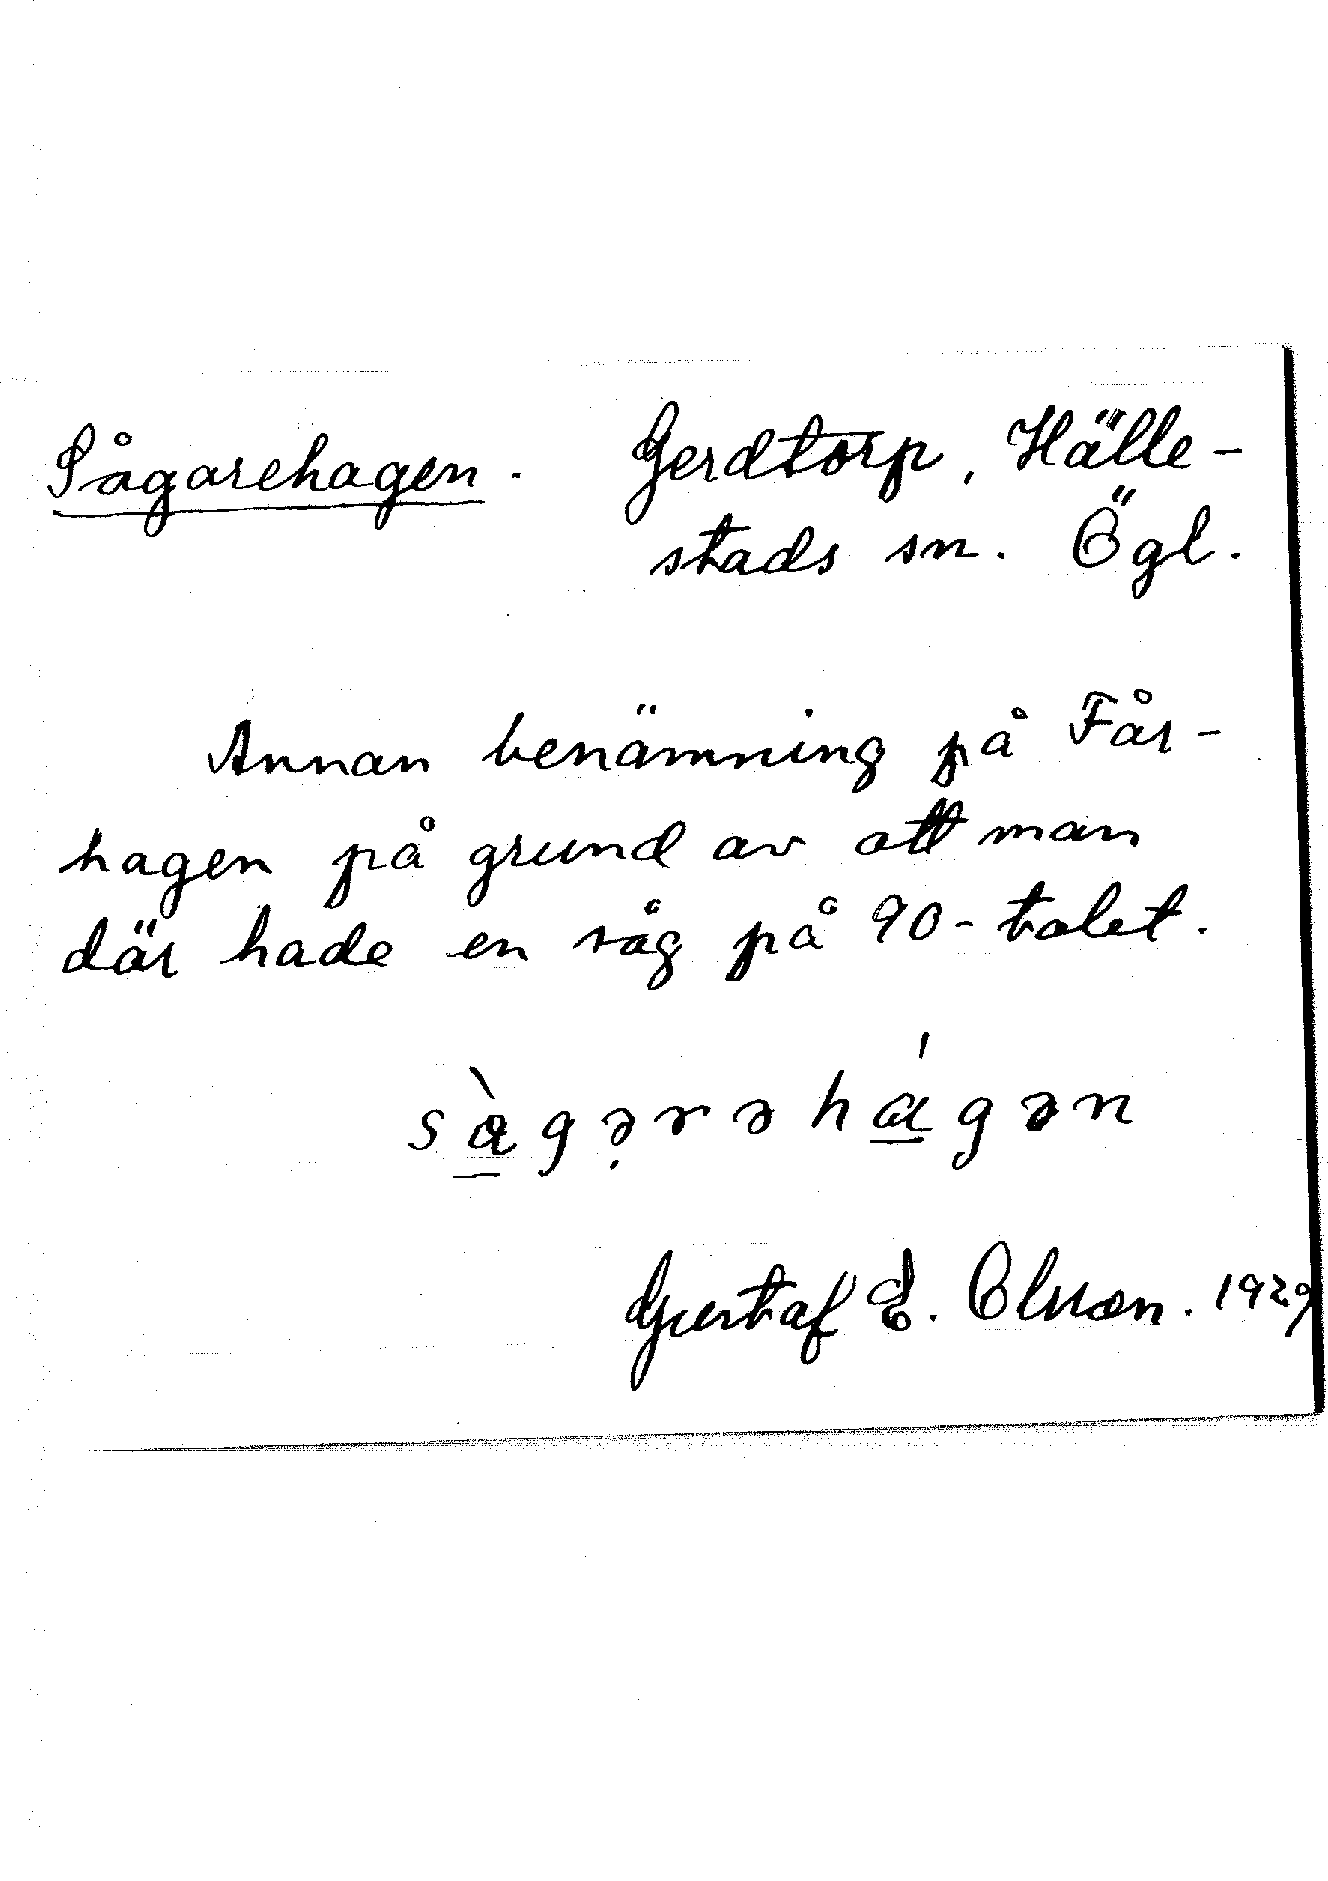 Sågarehagen. Gerdtorp, Hälle-
stads sn. Ögl.
Annan benämning på Får-
hagen på grund av att man
där hade en såg på 90-talet.
sà̱gə̣rəhá̱gən
Gustaf E. Olsson. 1929